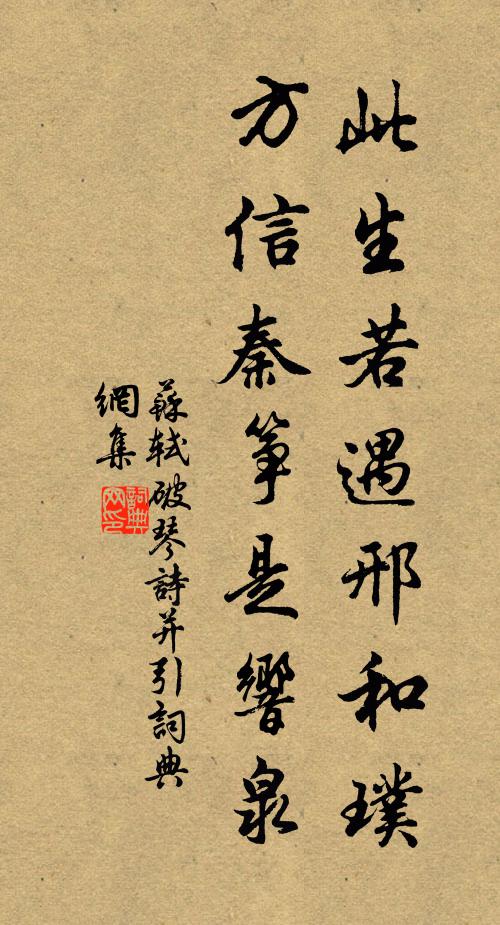 此生若遇邢和璞
方信秦箏是響泉
蘇軾破琴詩并引詞典
網集
詞典
网印